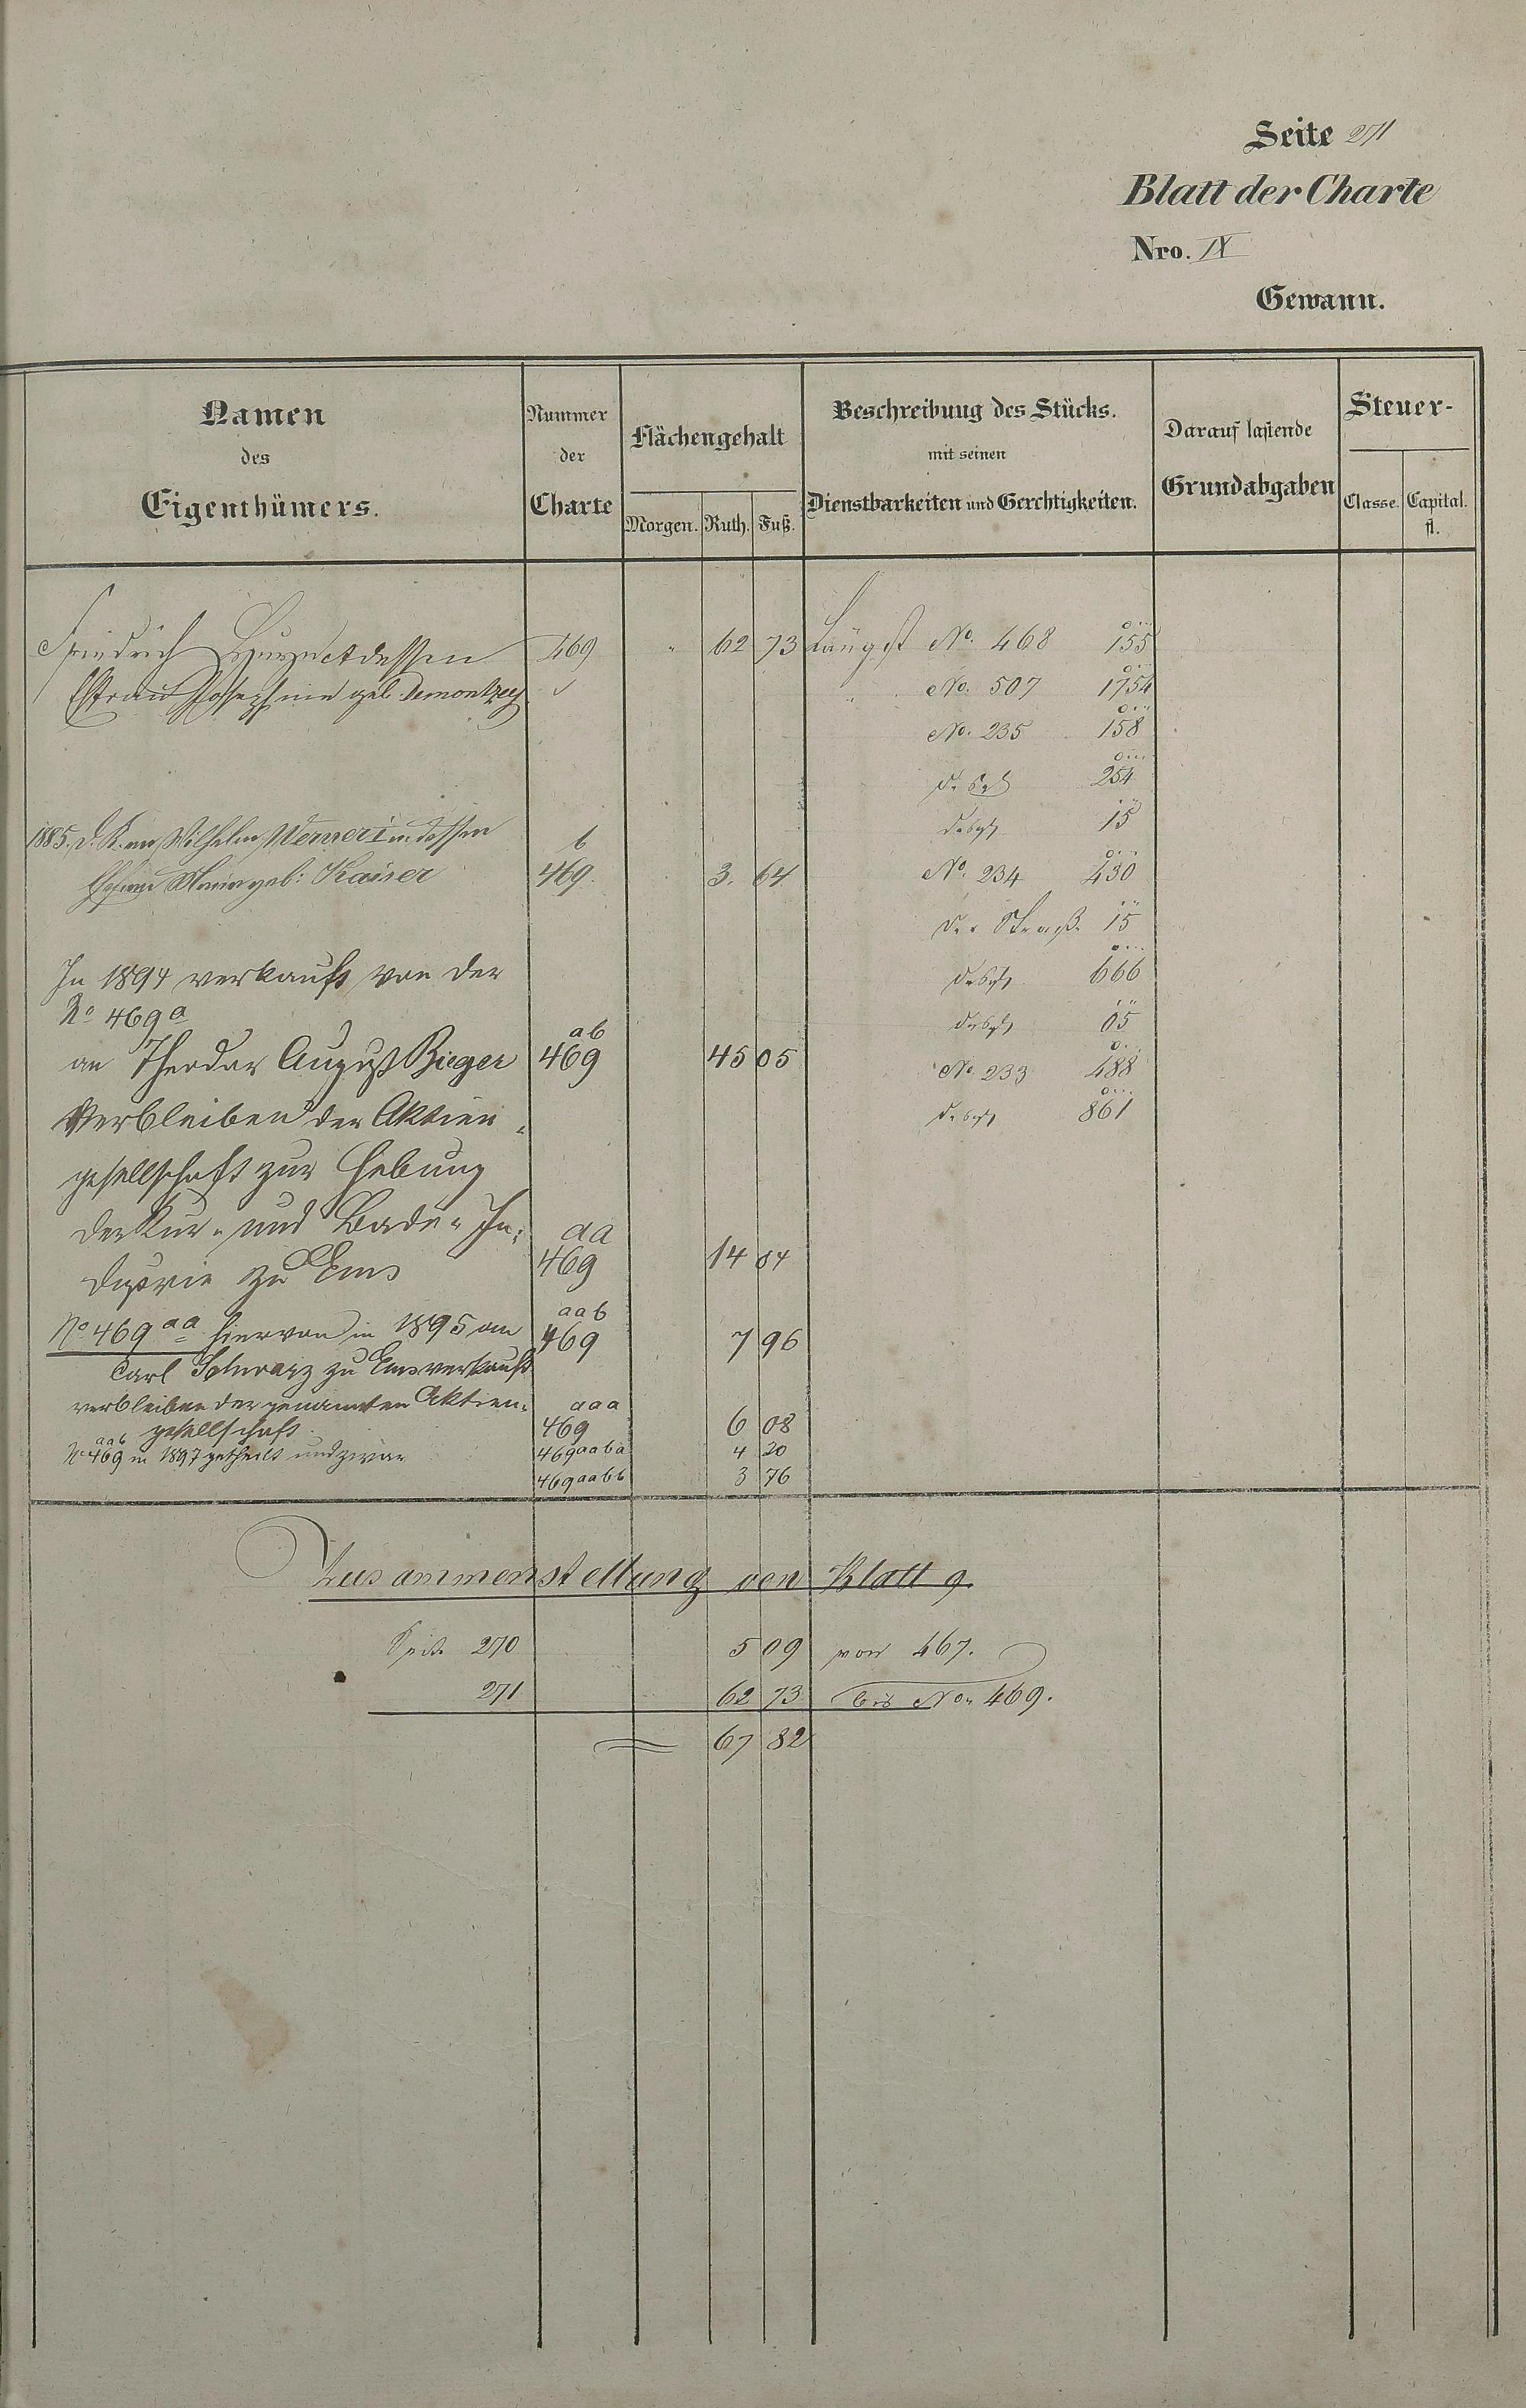 Seite 271
Blatt der Charte
Nro. IX
Gewann.
Namen des Eigenthümers.
Nummer der Charte
Flächengehalt
Morgen. Ruth. Fuß.
Beschreibung des Stücks. mit seinen Dienstbarkeiten und Gerechtigkeiten.
Darauf lastende Grundabgaben
Steuer-
Classe. Capital. fl.
Friedrich dessen 469 " 62 73 Längst No. 468 155
Ehfrau Josephine geb. No. 507 1754
No. 235 158
desgl 254
desgl 15
1885. Wilhelm Werner I u. dessen b
Ehefrau geb: Kaiser 469. 3. 64 No. 234 430
der Straße 15
In 1894 verkauft von der desgl 666
No 469 a desgl 05
an Theodor August Bieger 469 ab 45 05 No. 233 488
Verbleiben der Aktien- desgl 861
gesellschaft zur Hebung
der Kur- und Bade-In-
dustrie zu Ems 469 aa 14 04
No 469 aa hiervon in 1895 an 469 aab 7 96
Carl Schwarz zu Ems verkauft
verbleiben der genannten Aktien-
gesellschaft 469 aaa 6 08
No 469 aab in 1897 getheilt und zwar 469 aaba 4 20
469 aabb 3 76
Zusammenstellung von Blatt 9.
Seite 270 5 09 von 467.
271 62 73 bis No. 469.
67 82